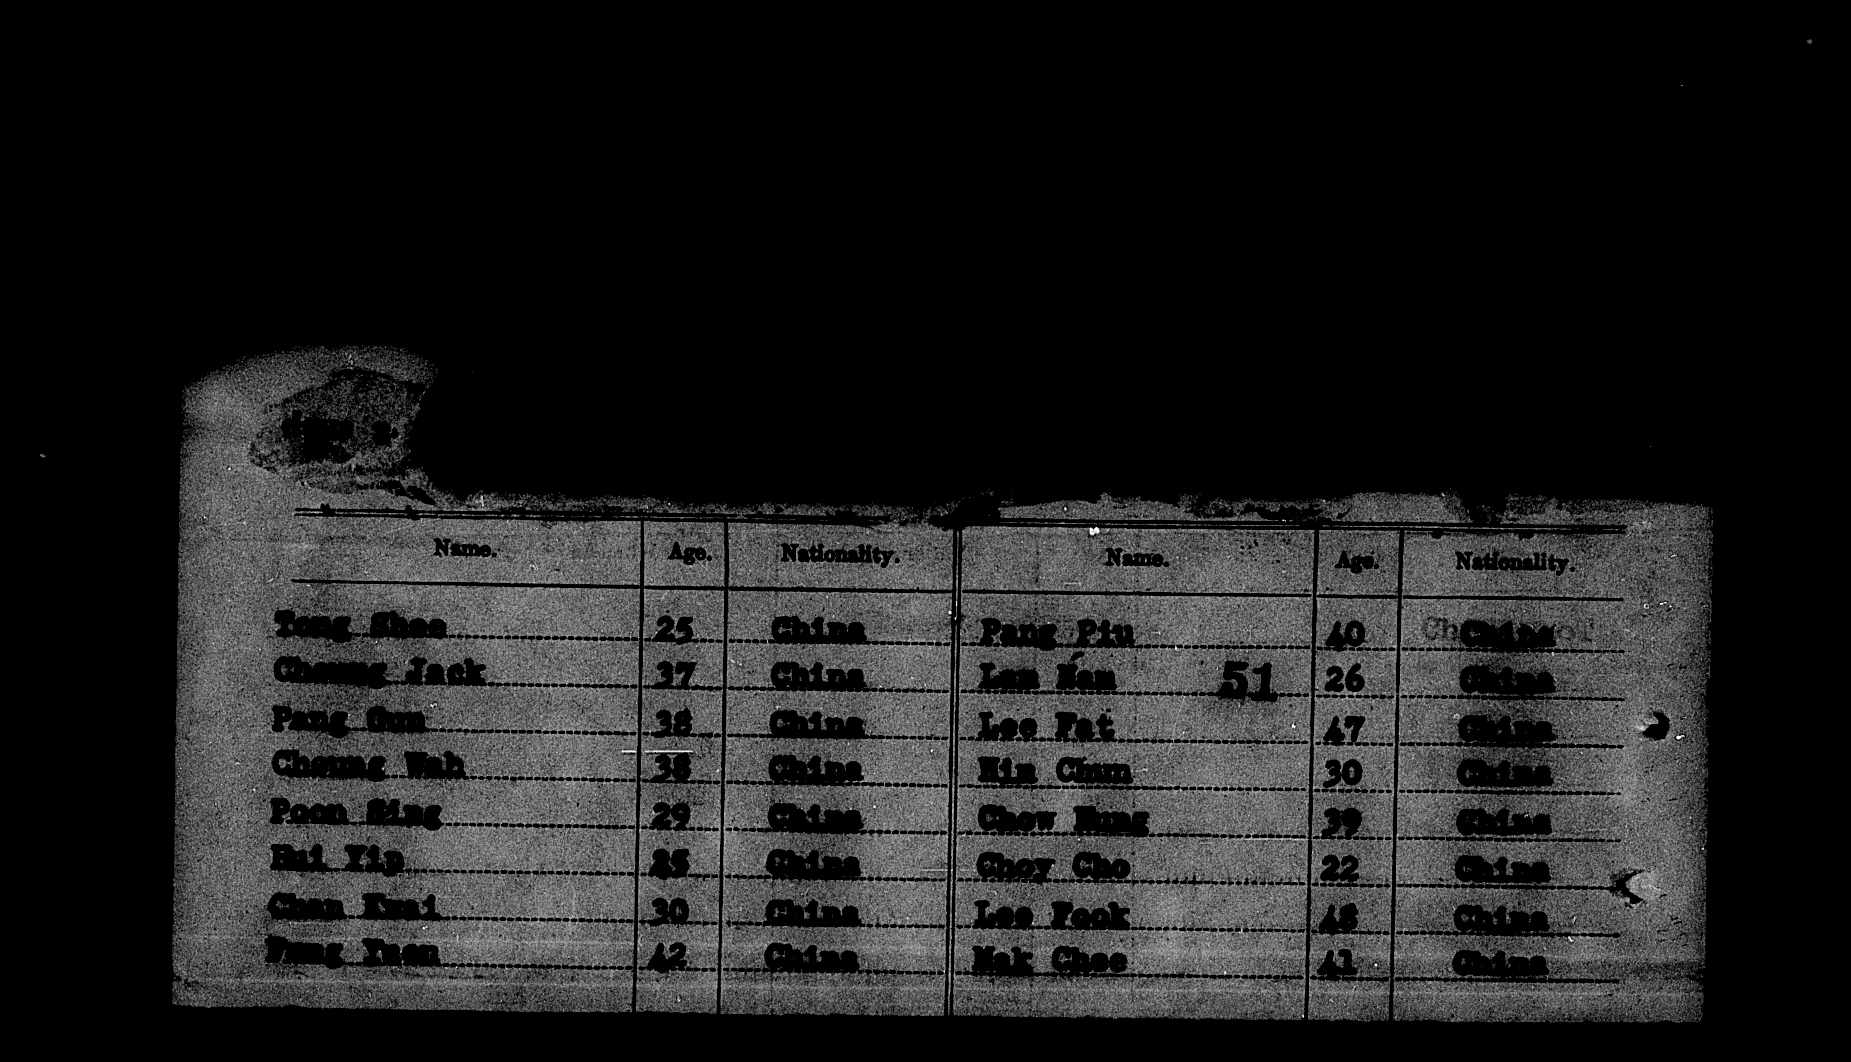 Name. Age. Nationality. Name. Age. Nationality.
Tong Shee 25 China Pang Piu 40 China
Cheung Jack 37 China Lam Nam 51 26 China
Pang Gun 38 China Lee Fat 47 China
Cheung Wah 38 China Him Chun 30 China
Poon Sing 29 China Chow Hung 39 China
Hui Yip 25 China Choy Cho 22 China
Chan Kwai 30 China Lee Fook 48 China
Fung Yuen 42 China Mak Chee 41 China